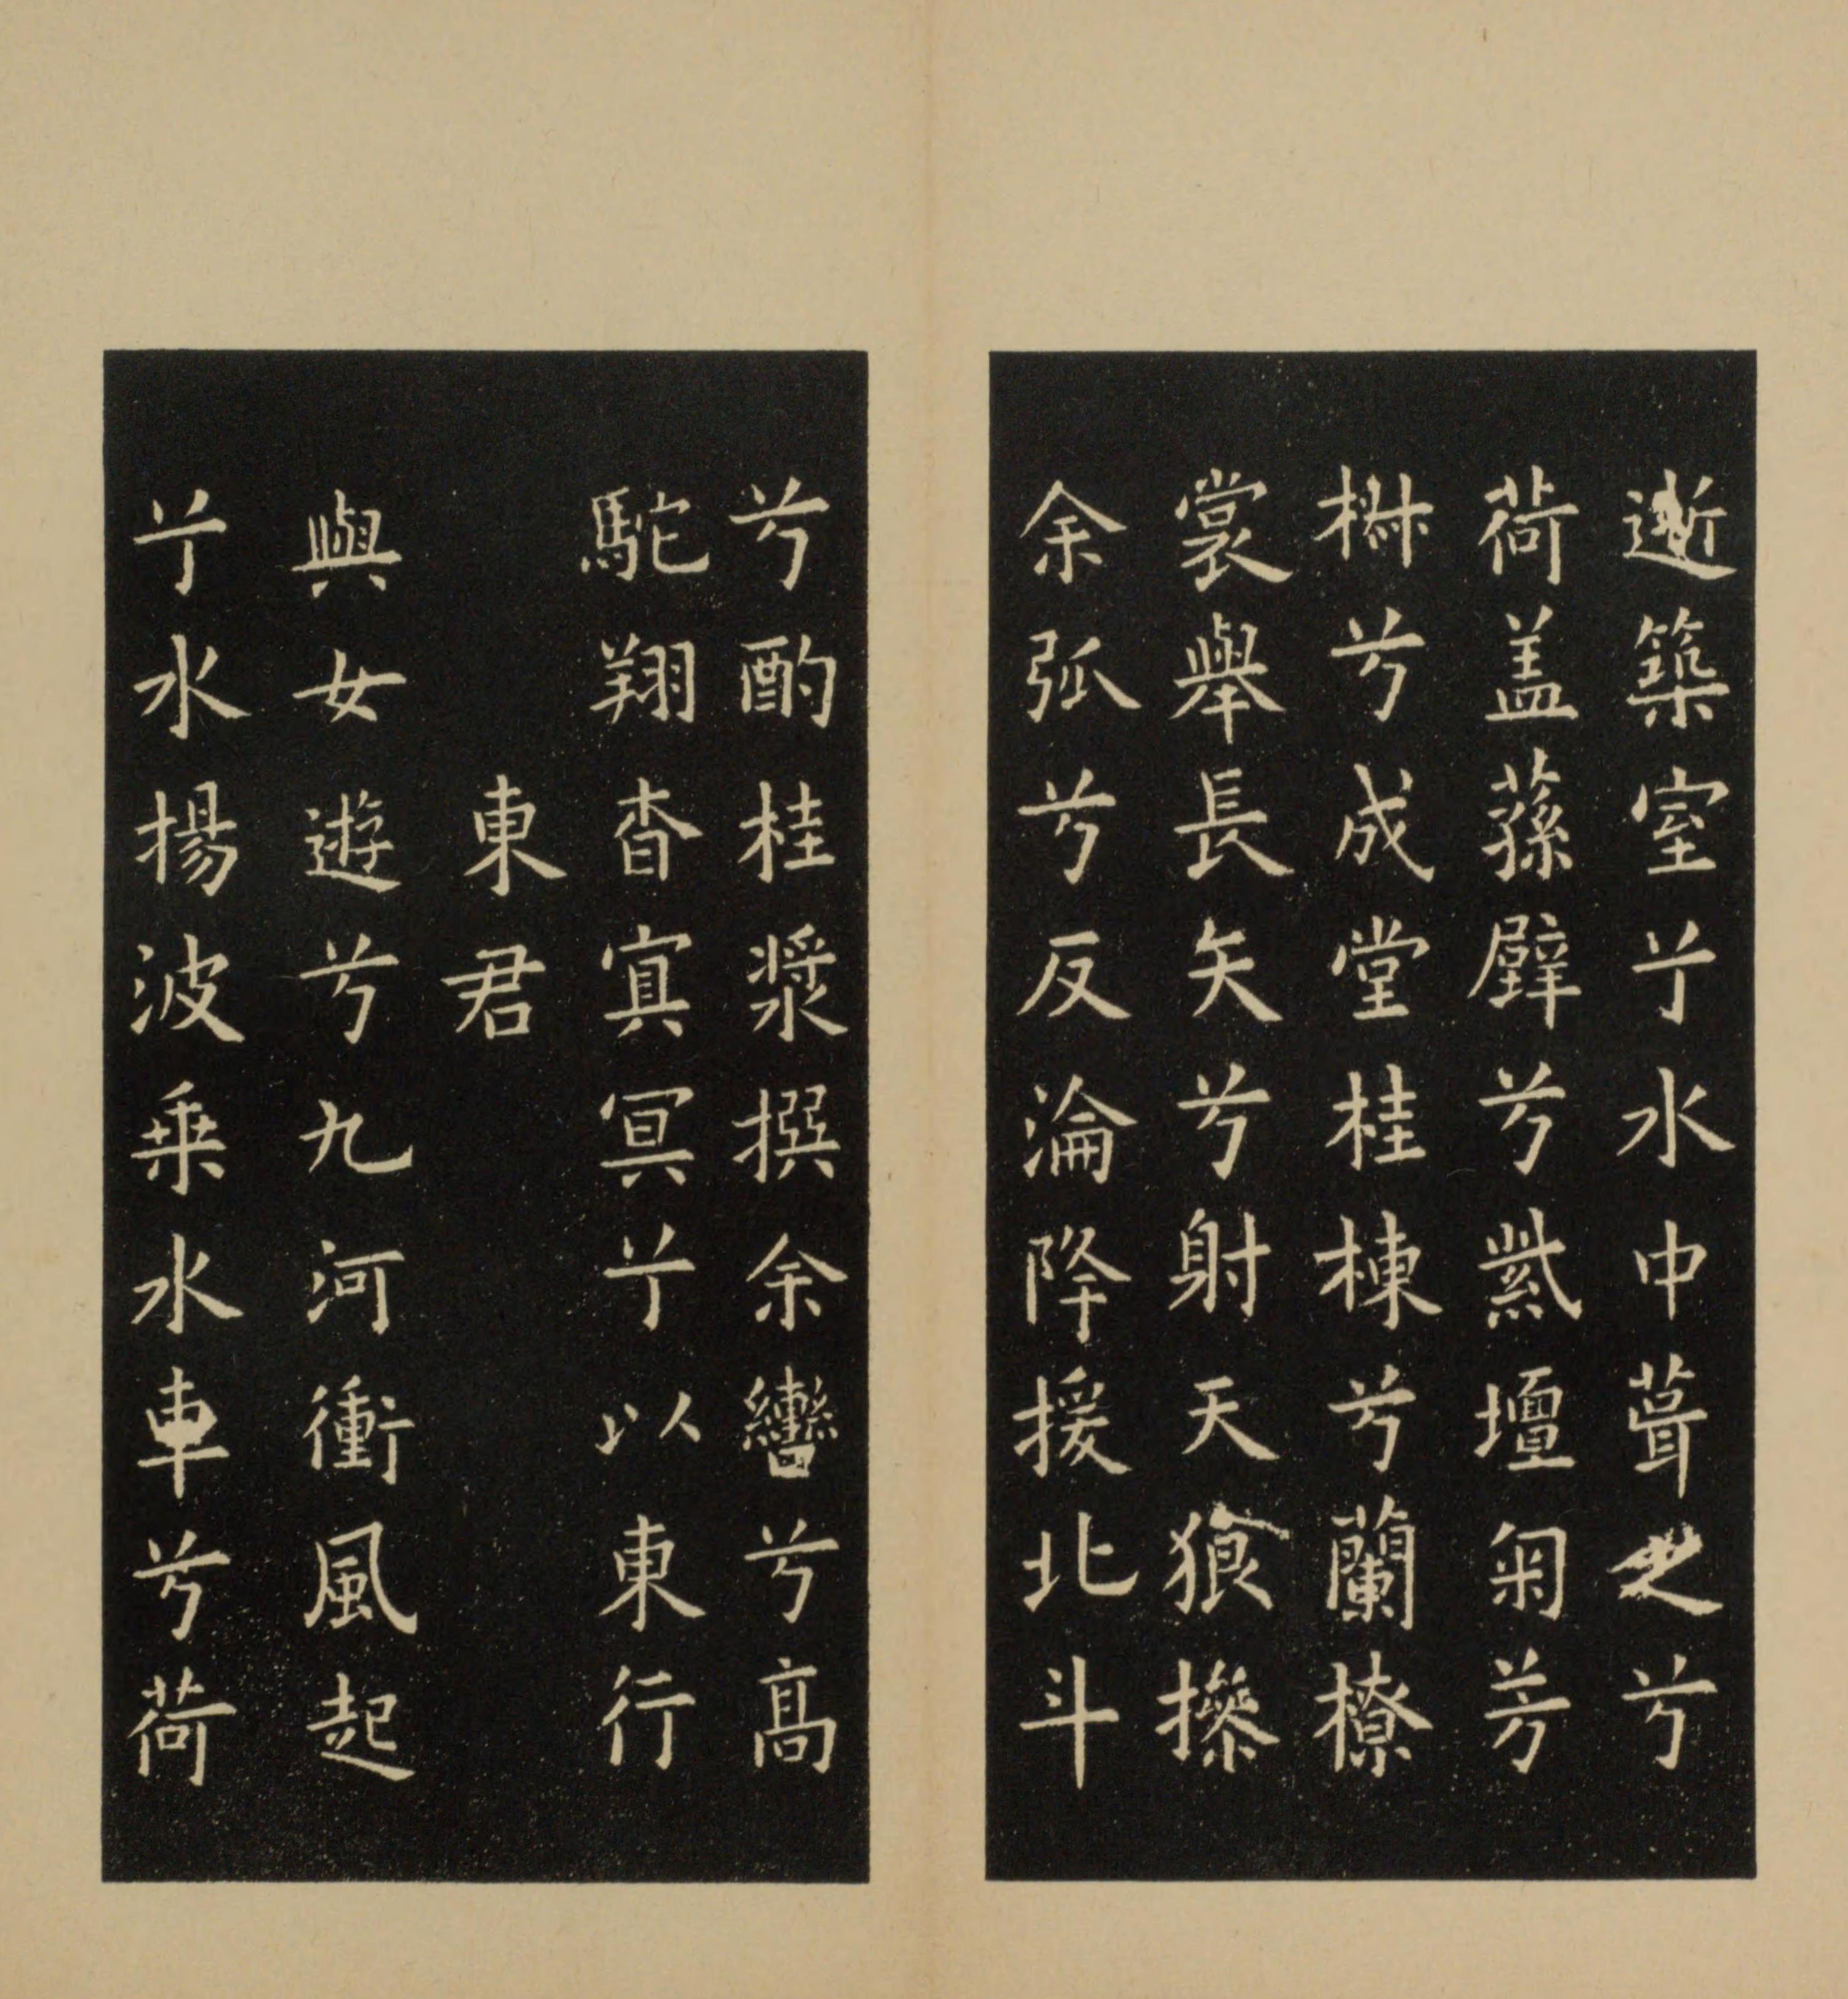 逝築室兮水中葺之兮
荷盖蓀壁兮紫壇匊芳
椒兮成堂桂棟兮蘭橑
裳舉長矢兮射天狼操
余弧兮反淪降援北斗
兮酌桂漿撰余轡兮髙
駝翔杳冥冥兮以東行
東君
與女遊兮九河衝風起
兮水揚波乗水車兮荷